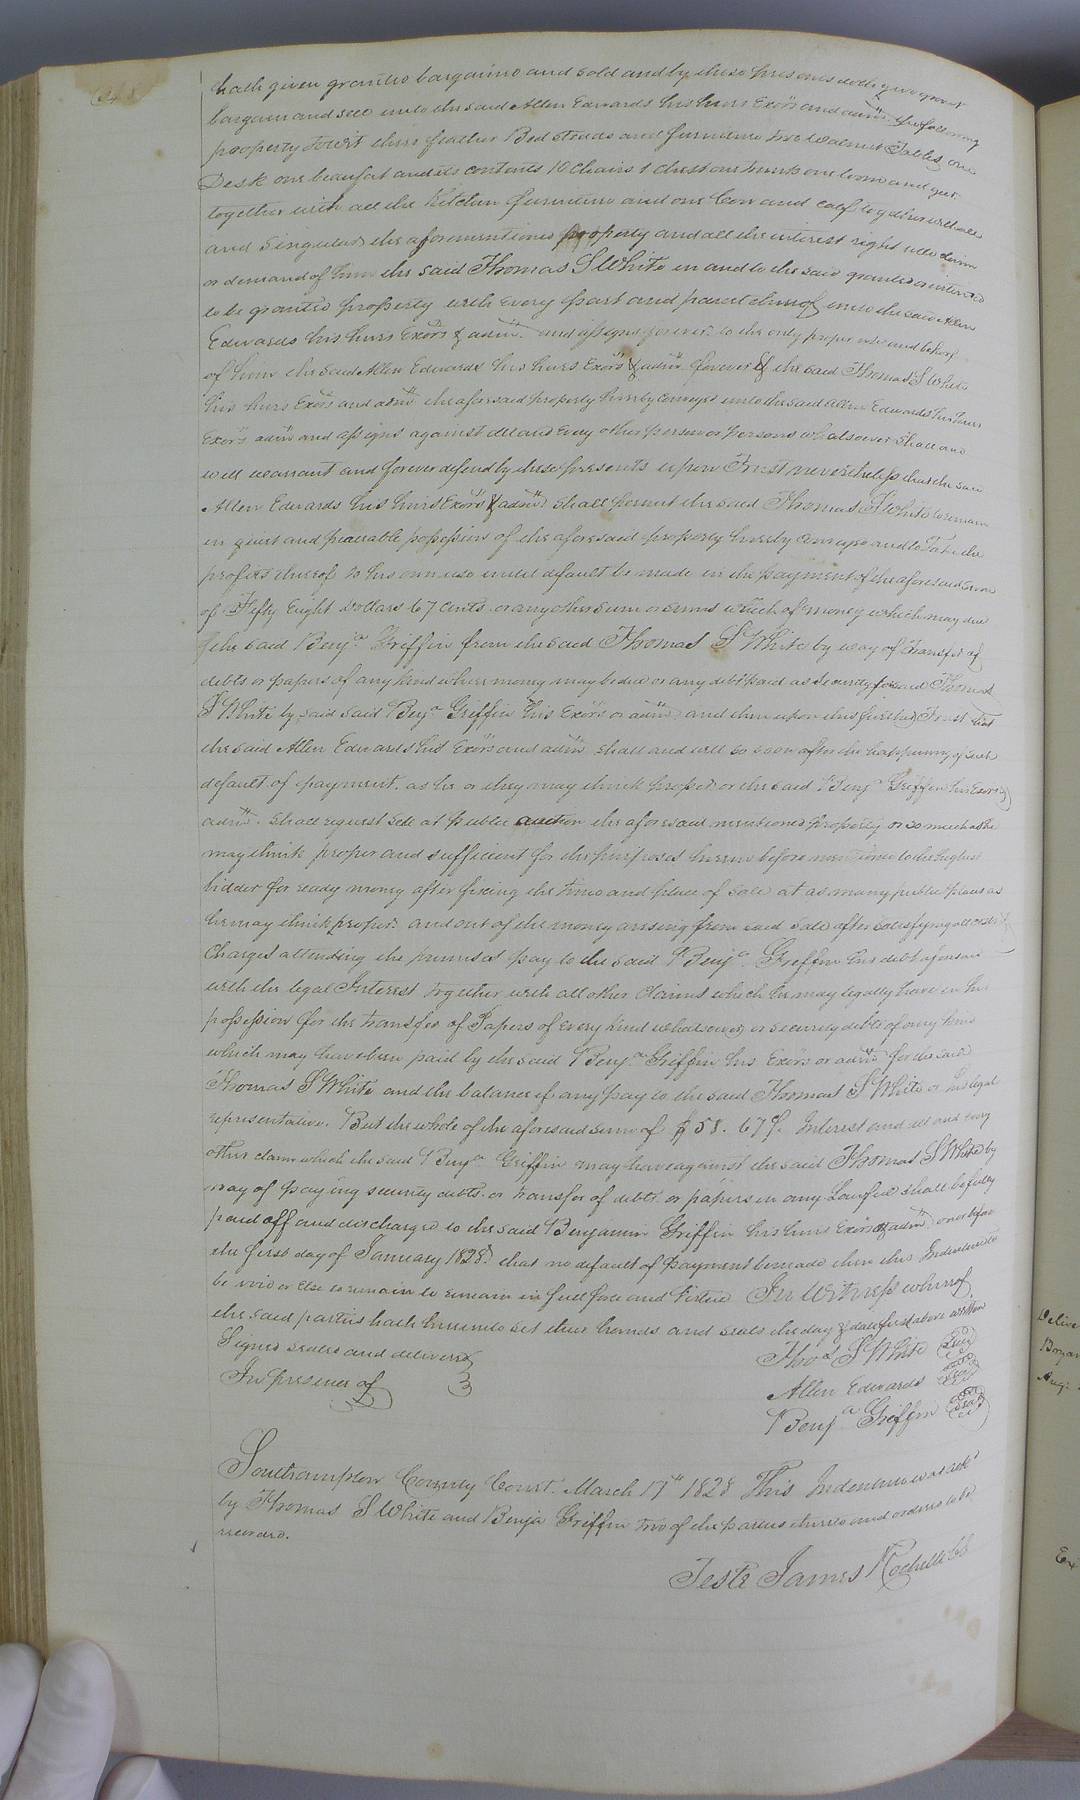 hath given granted bargained and sold and by these presents doth give grant
bargain and sell unto the said Allen Edwards his heirs Exors and admrs the following
property towit three feather Bed steads and furniture two walnut Tables one
Desk one beaufat and its contents 10 Chairs 1 chest one trunk one loom and gear
together with all the Kitchen furniture and one Cow and calf together with all
and Singular the aforementioned property and all the interest right title claim
or demand of him the said Thomas S White in and to the said granted or intended
to be granted property with every part and parcel thereof unto the said Allen
Edwards his heirs Exors & admrs and assigns forever to the only proper use and behoof
of him the said Allen Edwards his heirs Exors & admrs forever & the said Thomas S White
his heirs Exors and admrs the aforesaid property hereby conveyed unto the said Allen Edwards his heirs
Exors admrs and assigns against all and every other person or persons whatsoever Shall and
will warrant and forever defend by these presents upon Trust nevertheless that the said
Allen Edwards his heirs Exors & admrs Shall permit the said Thomas S White to remain
in quiet and peaceable possession of the aforesaid property hereby conveyed and to Take the
profits thereof to his own use until default be made in the payment of the aforesaid sum
of Fifty Eight Dollars 67 cents or any other sum or sums which of money which may due
the said Benja Griffin from the said Thomas S White by way of Transfer of
debts or papers of any kind where money may be due or any debt paid as Security for said Thomas
S White by said said Benja Griffin his Exors or admrs and then upon this further Trust that
the said Allen Edwards his Exors and admrs shall and will so soon after the happening of such
default of payment as he or they may think proper or the said Benja Griffin his Exors or
admrs shall request Sell at public auction the aforesaid mentioned property or so much as he
may think proper and sufficient for the purposes herein before mentioned to the highest
bidder for ready money after fixing the time and place of sale at as many public places as
he may think proper and out of the money arising from said sale after satisfying all other
Charges attending the premises pay to the said Benja Griffin his debt aforesaid
with the legal Interest together with all other Claims which he may legally have in his
possession for the transfer of Papers of every kind whatsoever or security debts of any kind
which may have been paid by the said Benja Griffin his Exors or admrs for the said
Thomas S White and the balance if any pay to the said Thomas S White or his legal
representative. But the whole of the aforesaid sum of $58. 67 cts. Interest and all and every
other claim which the said Benja Griffin may have against the said Thomas S White by
way of paying security debts or transfer of debts or papers in any Lawful shall be fully
paid off and discharged to the said Benjamin Griffin his heirs Exors or admrs on or before
the first day of January 1828. that no default of payment be made then this Indenture to
be void or Else to remain to remain in full force and virtue In Witness whereof
the said parties hath hereunto set their hands and seals the day & date first above written
Signed sealed and delivered
In presence of
Thos S White Seal
Allen Edwards Seal
Benja Griffin Seal
Southampton County Court. March 17th 1828 This Indenture was ackd
by Thomas S White and Benja Griffin two of the parties thereto and ordered to be
recorded.
Teste James Rochelle Cl